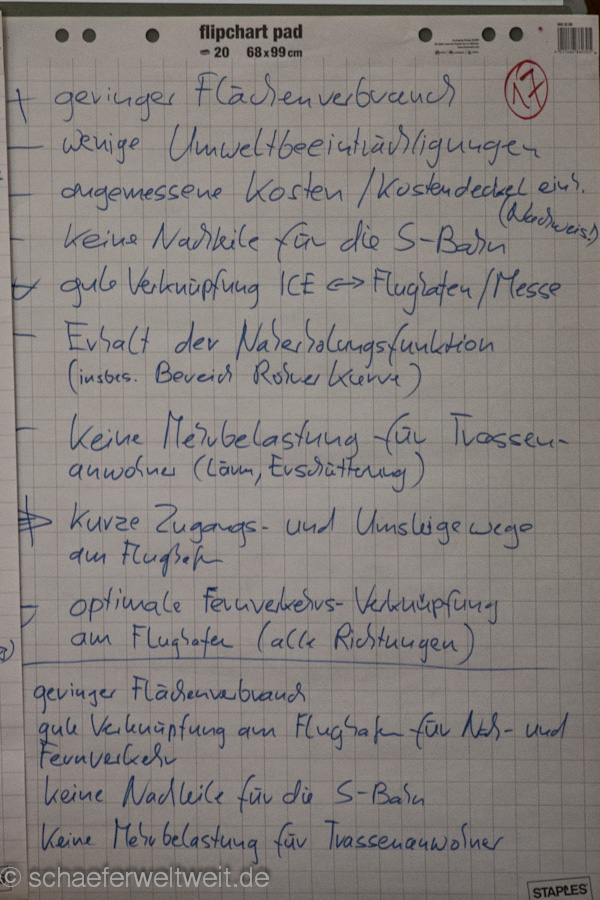 flipchart pad
20 68 x 99 cm
17
+ geringer Flächenverbrauch
- wenige Umweltbeeinträchtigungen
- angemessene Kosten / Kostendeckel einh.
(Nachweis!)
- keine Nachteile für die S-Bahn
gute Verknüpfung ICE <-> Flughafen / Messe
- Erhalt der Naherholungsfunktion
(insbes. Bereich Rohrer Kurve)
- Keine Mehrbelastung für Trassen-
anwohner (Lärm, Erschütterung)
Kurze Zugangs- und Umsteigewege
am Flughafen
- optimale Fernverkehrs-Verknüpfung
am Flughafen (alle Richtungen)
geringer Flächenverbrauch
gute Verknüpfung am Flughafen für Nah- und
Fernverkehr
keine Nachteile für die S-Bahn
Keine Mehrbelastung für Trassenanwohner
© schaeferweltweit.de
STAPLES